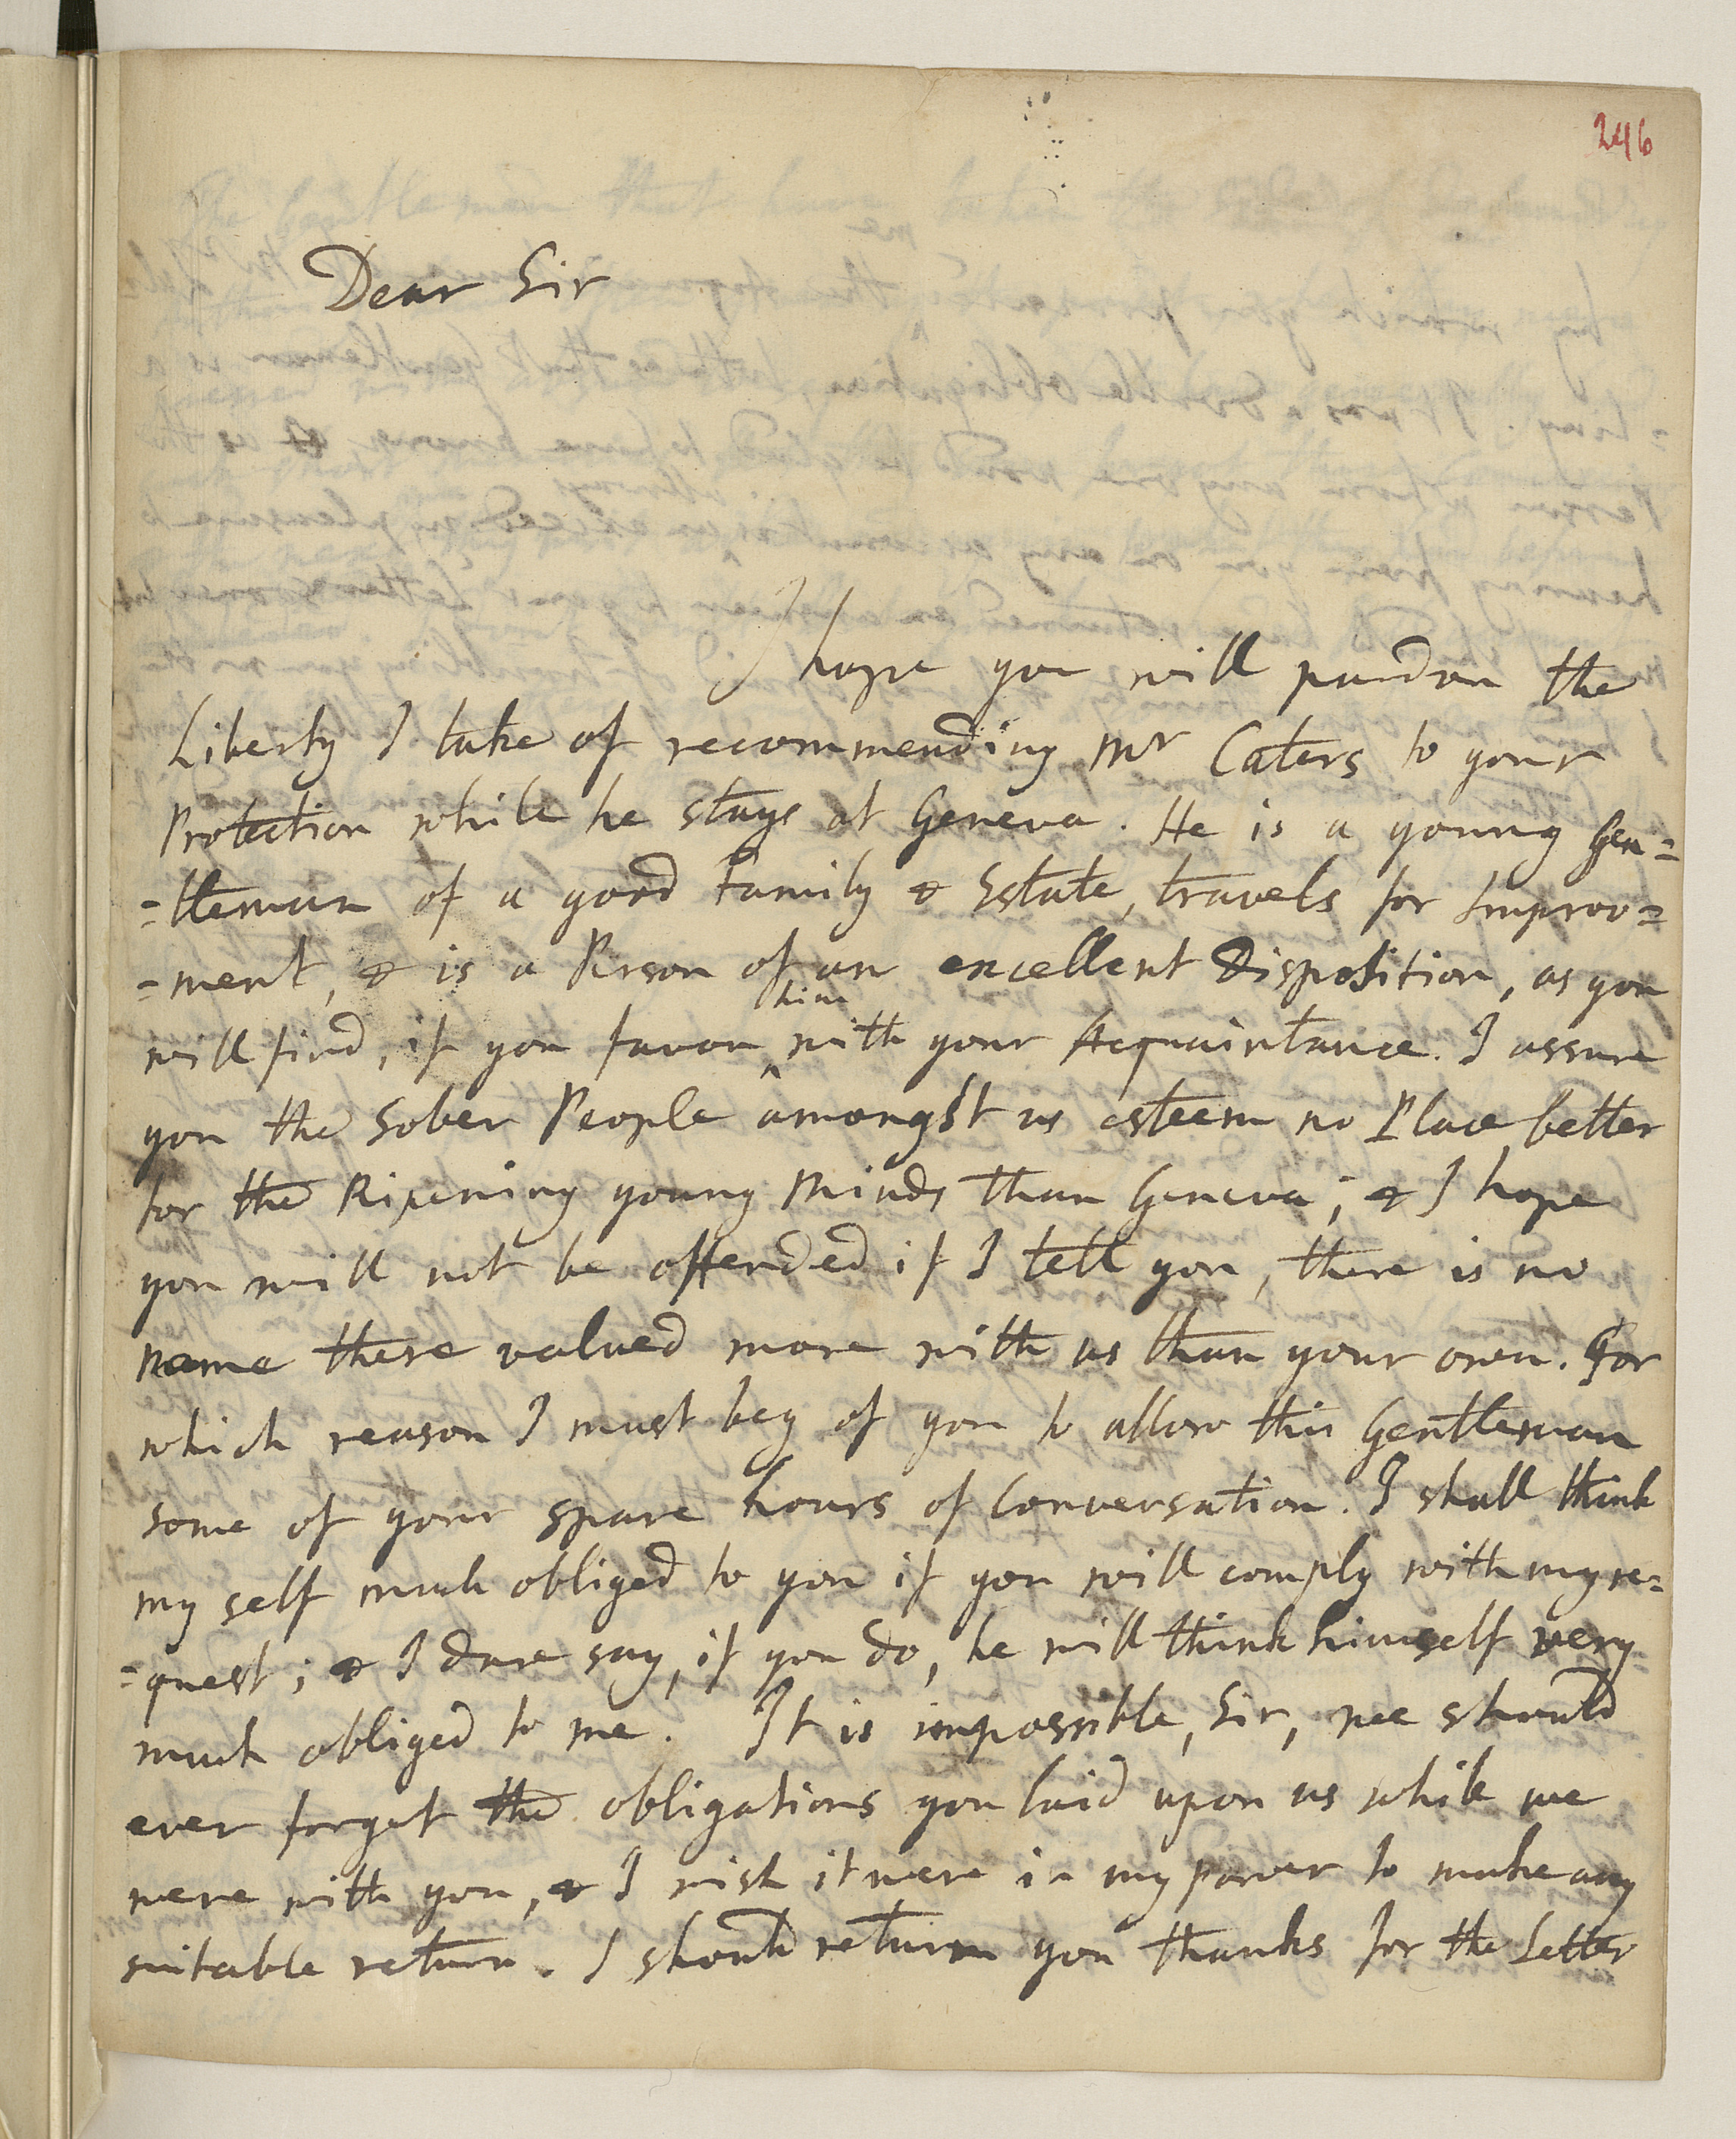 246
Dear Sir
I hope you will pardon the
Liberty I take of recommending Mr Caters to your
Protection while he stays at Geneva. He is a young Gen=
=tleman of a good Family & Estate, travels for Improv=
=ment, & is a Person of an excellent Disposition, as you
will find, if you favour him with your Acquaintance. I assure
you the Sober People amongst us esteem no Place better
for the Ripening young Minds than Geneva; & I hope
you will not be offended if I tell you, there is no
Name there valued more with us than your own. For
which reason I must beg of you to allow this Gentleman
some of your spare hours of Conversation. I shall think
my self much obliged to you if you will comply with my re=
=quest; & I dare say, if you do, he will think himself very
much obliged to me. It is impossible, Sir, we should
ever forget the obligations you laid upon us while we
were with you, & I wish it were in my power to make any
suitable return. I should return you thanks for the Letter